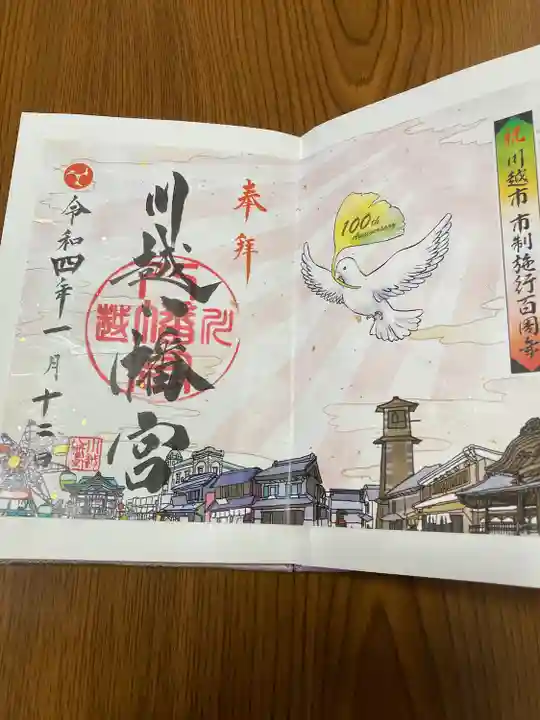 祝 川越市 市制施行百周年
100th
Anniversary
奉拝
川越八幡宮
令和四年一月十二日